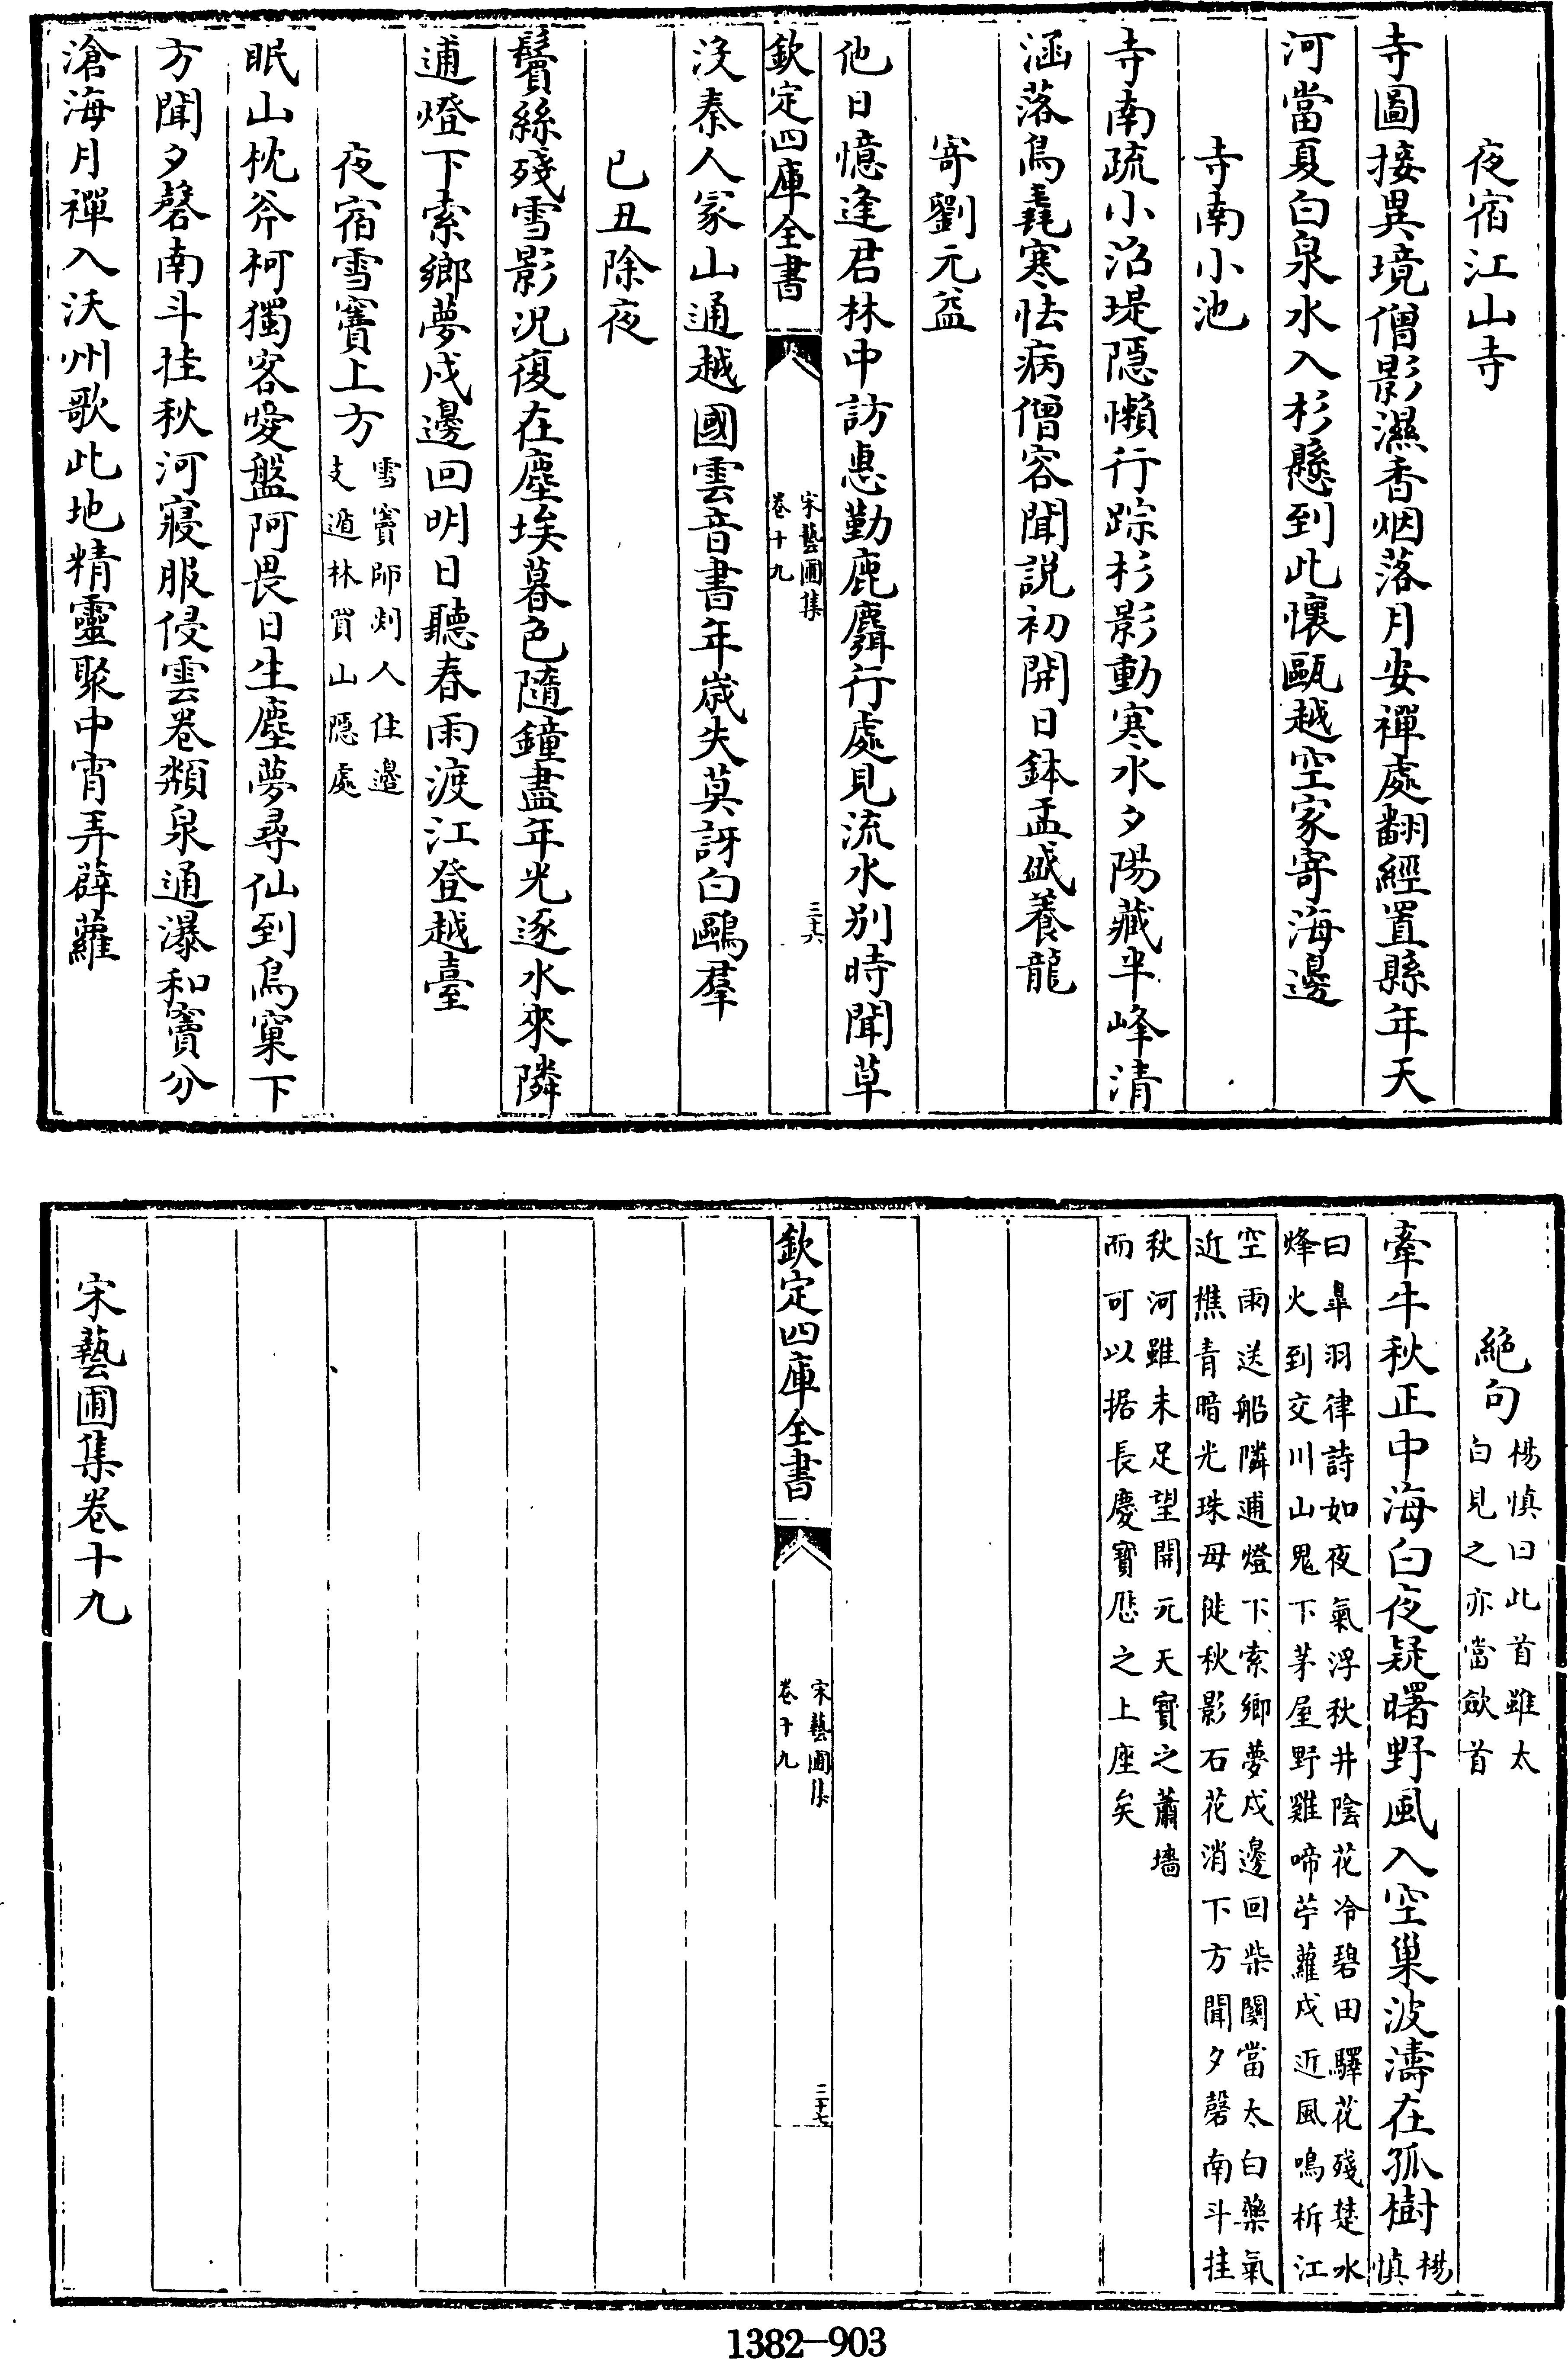 夜宿江山寺
寺圖接異境僧影濕香烟落月安禪處翻經置縣年天
河當夏白泉水入杉懸到此懷甌越空家寄海邊
寺南小池
寺南疏小沼堤隱懶行踪杉影動寒水夕陽藏半峰清
涵落鳥毳寒怯病僧容聞説初開日鉢盂盛養龍
寄劉元益
他日憶逢君林中訪惠勤鹿麛行處見流水别時聞草
欽定四庫全書
宋藝圃集
卷十九
三十六
没秦人冢山通越國雲音書年嵗失莫訝白鷗羣
已丑除夜
鬢絲殘雪影况復在塵埃暮色隨鐘盡年光逐水來隣
逋燈下索鄉夢戍邊回明日聽春雨渡江登越臺
夜宿雪竇上方
雪竇師剡人住邉
支遁林買山隠處
眠山枕斧柯獨客愛盤阿畏日生塵夢尋仙到鳥窠下
方聞夕磬南斗挂秋河寢服侵雲卷頮泉通瀑和竇分
滄海月禪入沃州歌此地精靈聚中宵弄薜蘿
絶句
楊慎曰此首雖太
白見之亦當歛首
牽牛秋正中海白夜疑曙野風入空巢波濤在孤樹
楊
慎
曰皐羽律詩如夜氣浮秋井陰花冷碧田驛花殘楚水
烽火到交川山鬼下茅屋野雞啼苧蘿戍近風鳴柝江
空雨送船隣逋燈下索鄉夢戍邊回柴闗當太白藥氣
近樵青暗光珠母徙秋影石花消下方聞夕磬南斗挂
秋河雖未足望開元天寳之蕭墻
而可以据長慶寳厯之上座矣
欽定四庫全書
宋藝圃集
卷十九
三十七
宋藝圃集卷十九
1382—903